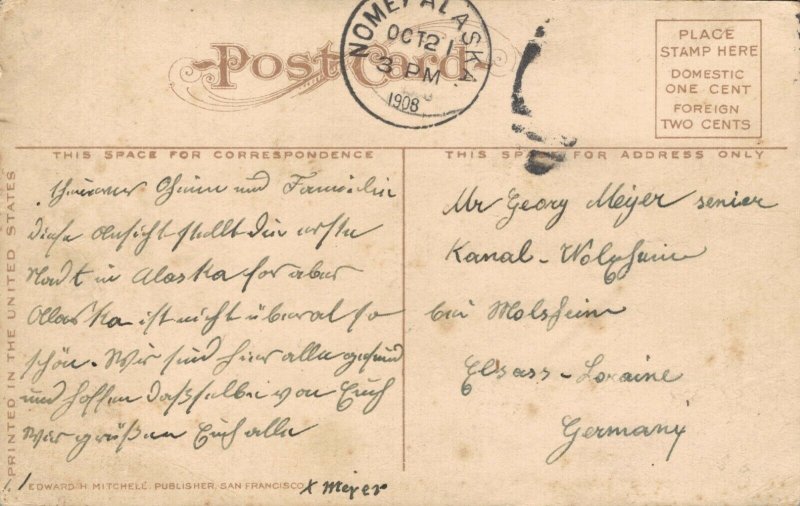 NOME, ALASKA.
OCT 21
3 PM
1908
Post Card
PLACE
STAMP HERE
DOMESTIC
ONE CENT
FOREIGN
TWO CENTS
THIS SPACE FOR CORRESPONDENCE
Oheim und Familie
diese Ansicht stellt die erste
Stadt in Alaska for aber
Alaska ist nicht überal so
schön. Wir sind hier alle gesund
und hoffen dasselbe von Euch
Wir grüßen Euch alle
X Meyer
THIS SP FOR ADDRESS ONLY
Mr Georg Meyer senior
Kanal-Wolxheim
bei Molsheim
Elsass-Loraine
Germany
PRINTED IN THE UNITED STATES
EDWARD H. MITCHELL, PUBLISHER, SAN FRANCISCO